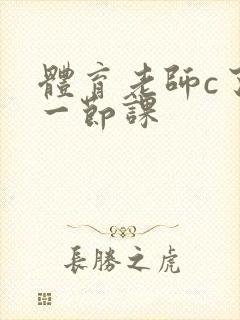 體育老師c了
一節課
長勝之虎